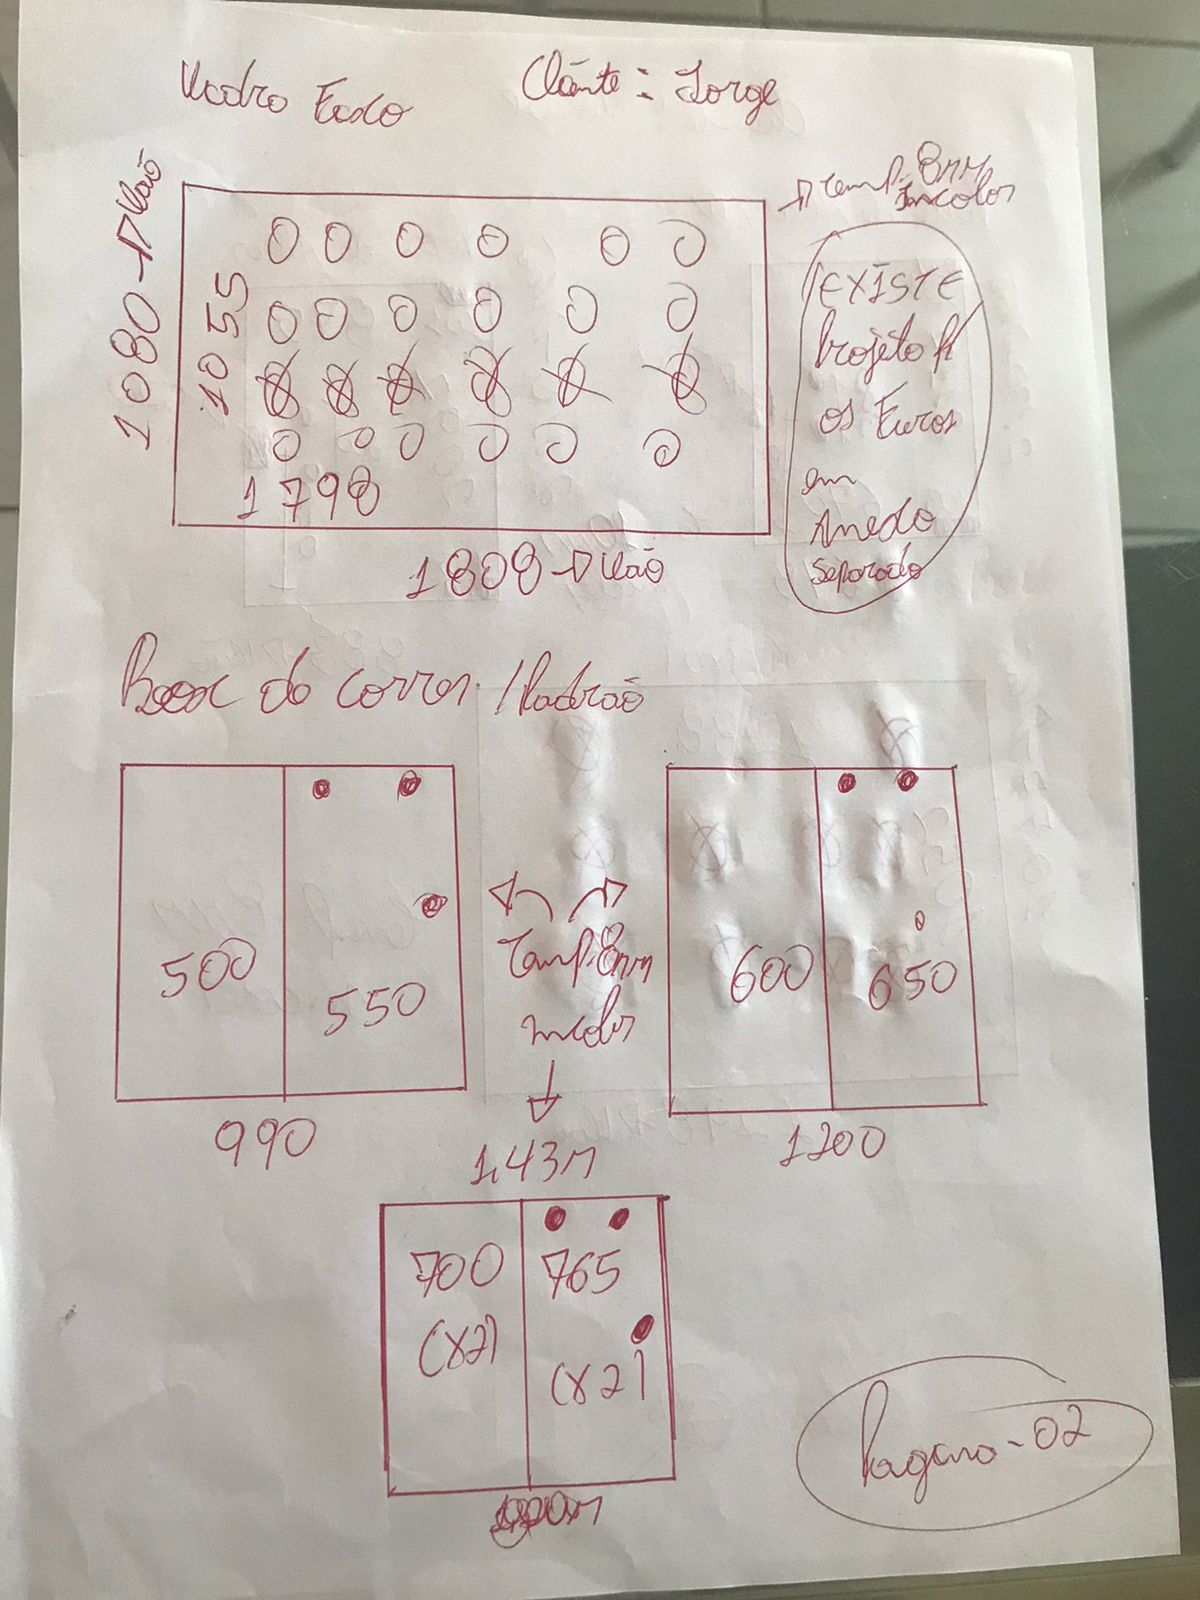 Vidro Fixo
Cliente: Jorge
1080 → Vão
1055
1798
1808 → Vão
→ Temp. 8mm
Incolor
EXISTE
Projeto p/
os Furos
em
Anexo
separado
Box de correr / Padrão
500
550
990
Temp. 8mm
incolor
600
650
1200
1,43m
700
(x2)
765
(x2)
Pagina - 02